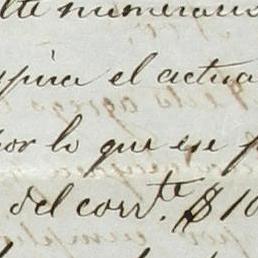 lte numerario
spira el actua
por lo que ese p
del corrte. $ 10